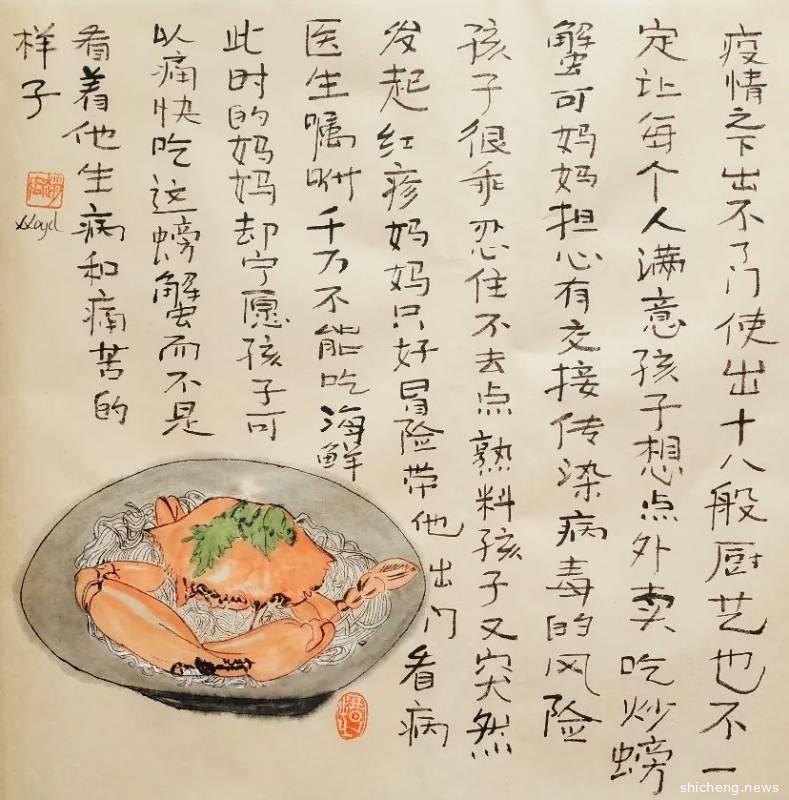 疫情之下出不了门使出十八般厨艺也不一
定让每个人满意孩子想点外卖吃炒螃
蟹可妈妈担心有交接传染病毒的风险
孩子很乖忍住不去点熟料孩子又突然
发起红疹妈妈只好冒险带他出门看病
医生嘱咐千万不能吃海鲜
此时的妈妈却宁愿孩子可
以痛快吃这螃蟹而不是
看着他生病和痛苦的
样子
shicheng.news